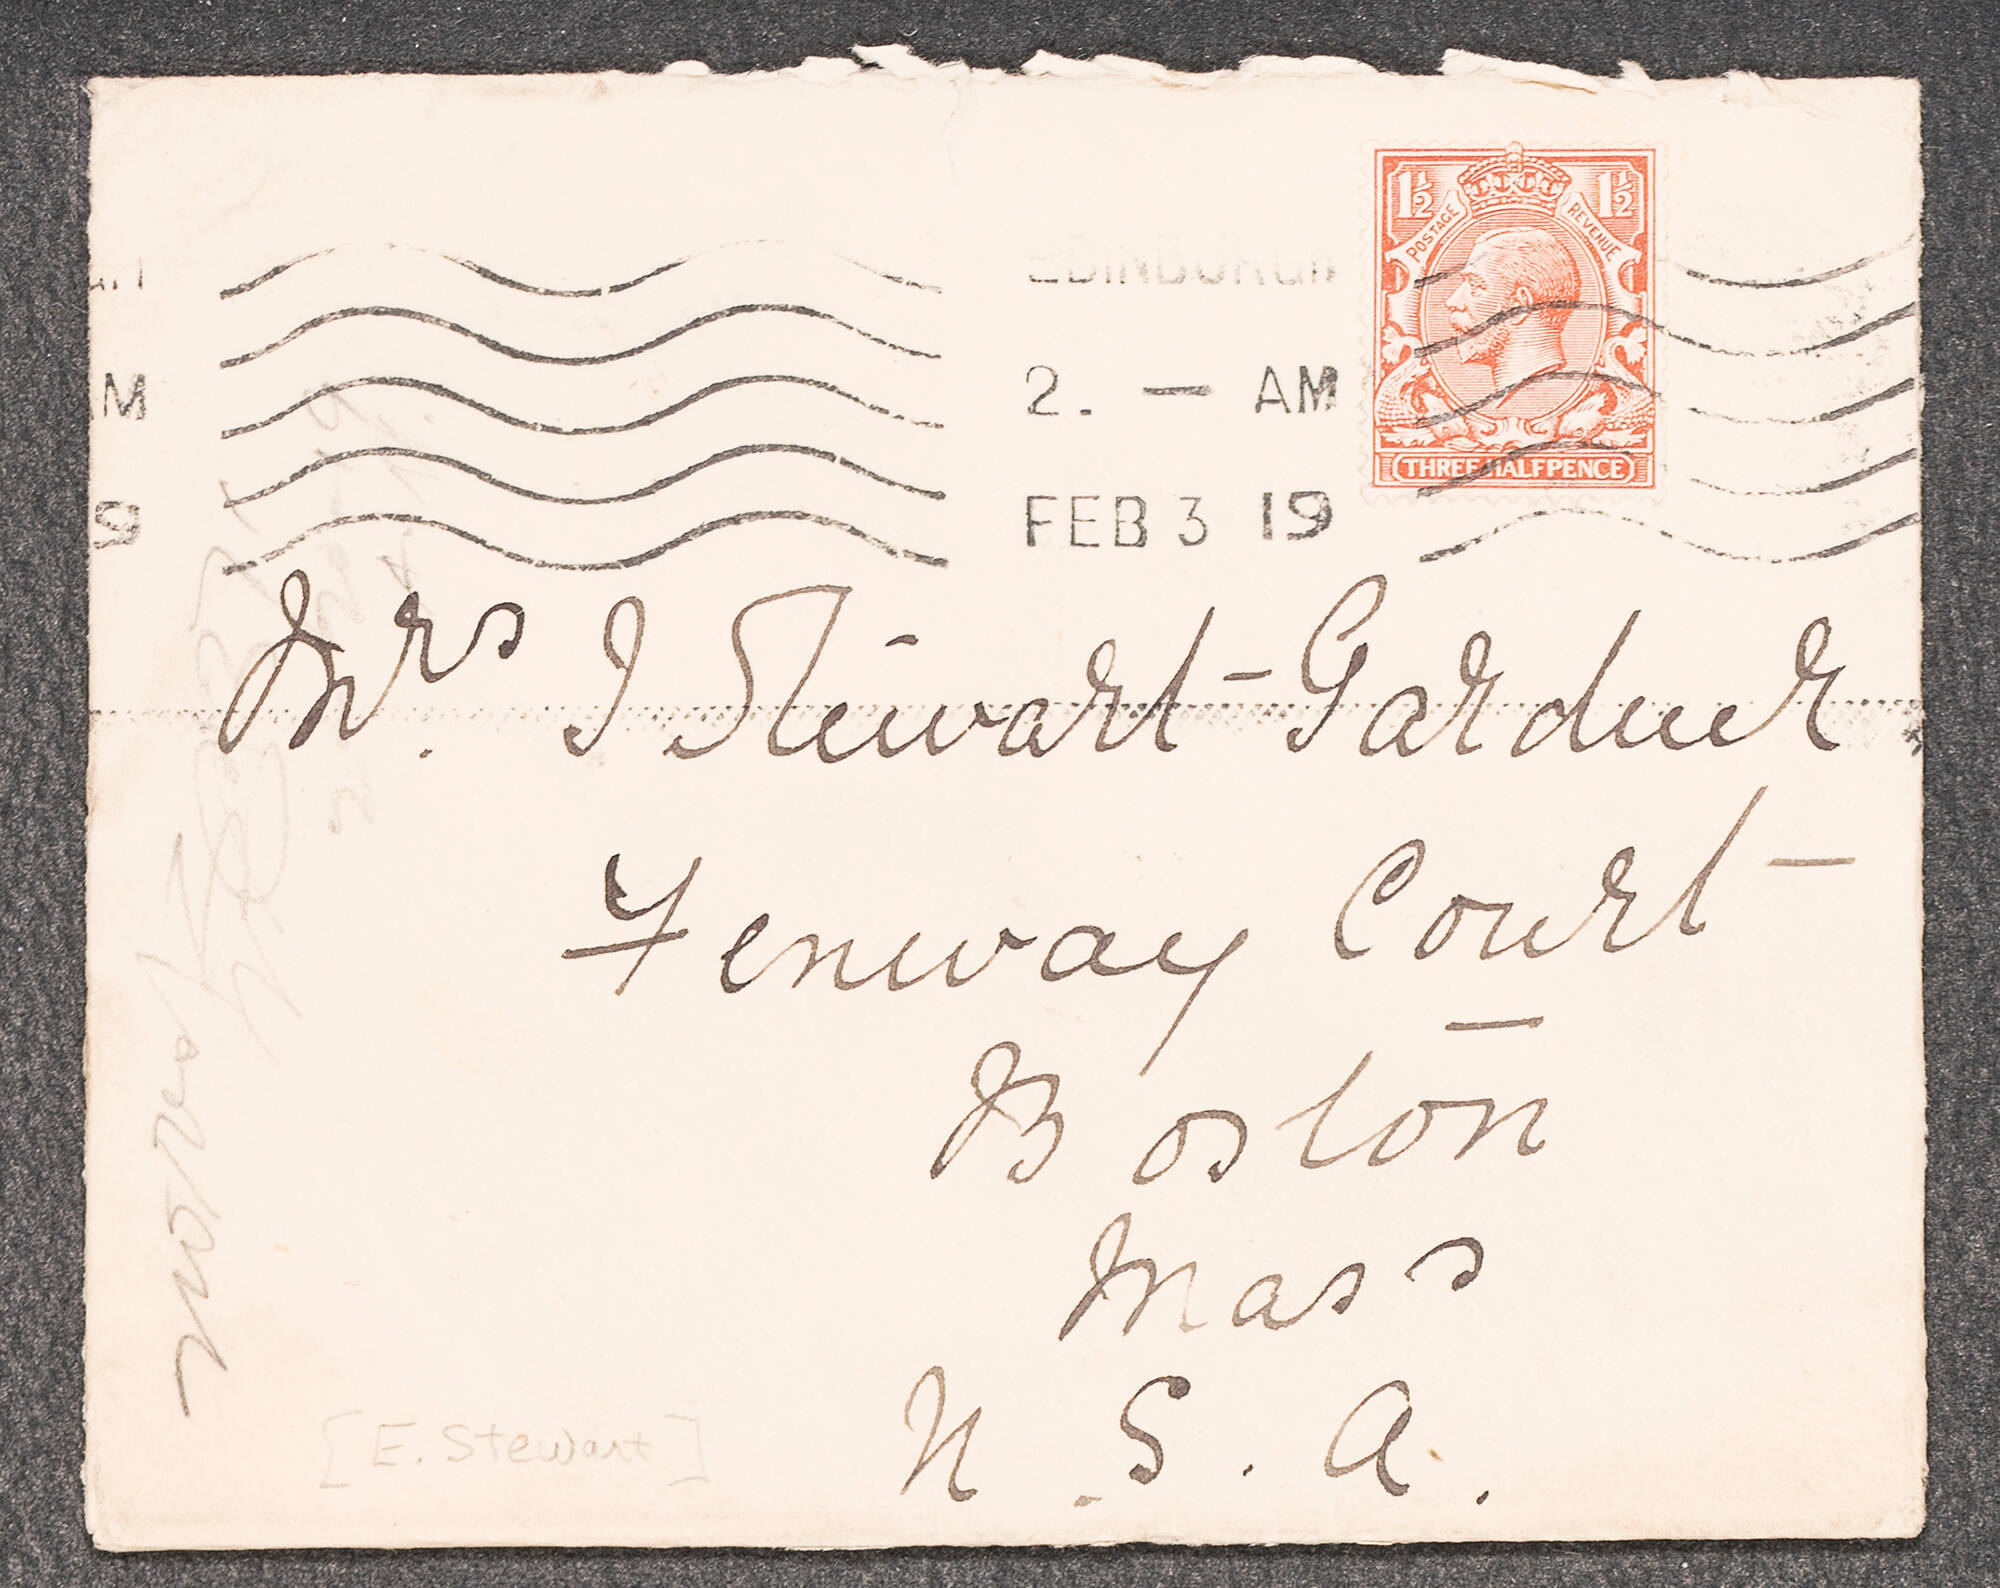 EDINBURGH
2. — AM
FEB 3 19
M
9
1½ 1½
POSTAGE REVENUE
THREE HALFPENCE
Mrs. J Stewart-Gardner
Fenway Court
Boston
Mass
U.S.A.
[E. Stewart]